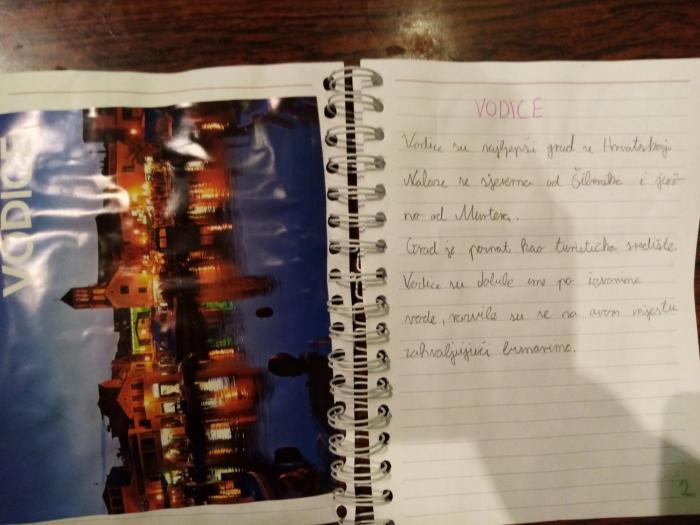 VODICE
VODICE
Vodice su najljepši grad u Hrvatskoj
Nalaze se sjeverno od Šibenika i juž-
no od Murtera.
Grad je poznat kao turističko središte.
Vodice su dobile ime po izvorima
vode, razvile su se na ovom mjestu
zahvaljujući bunarima.
2